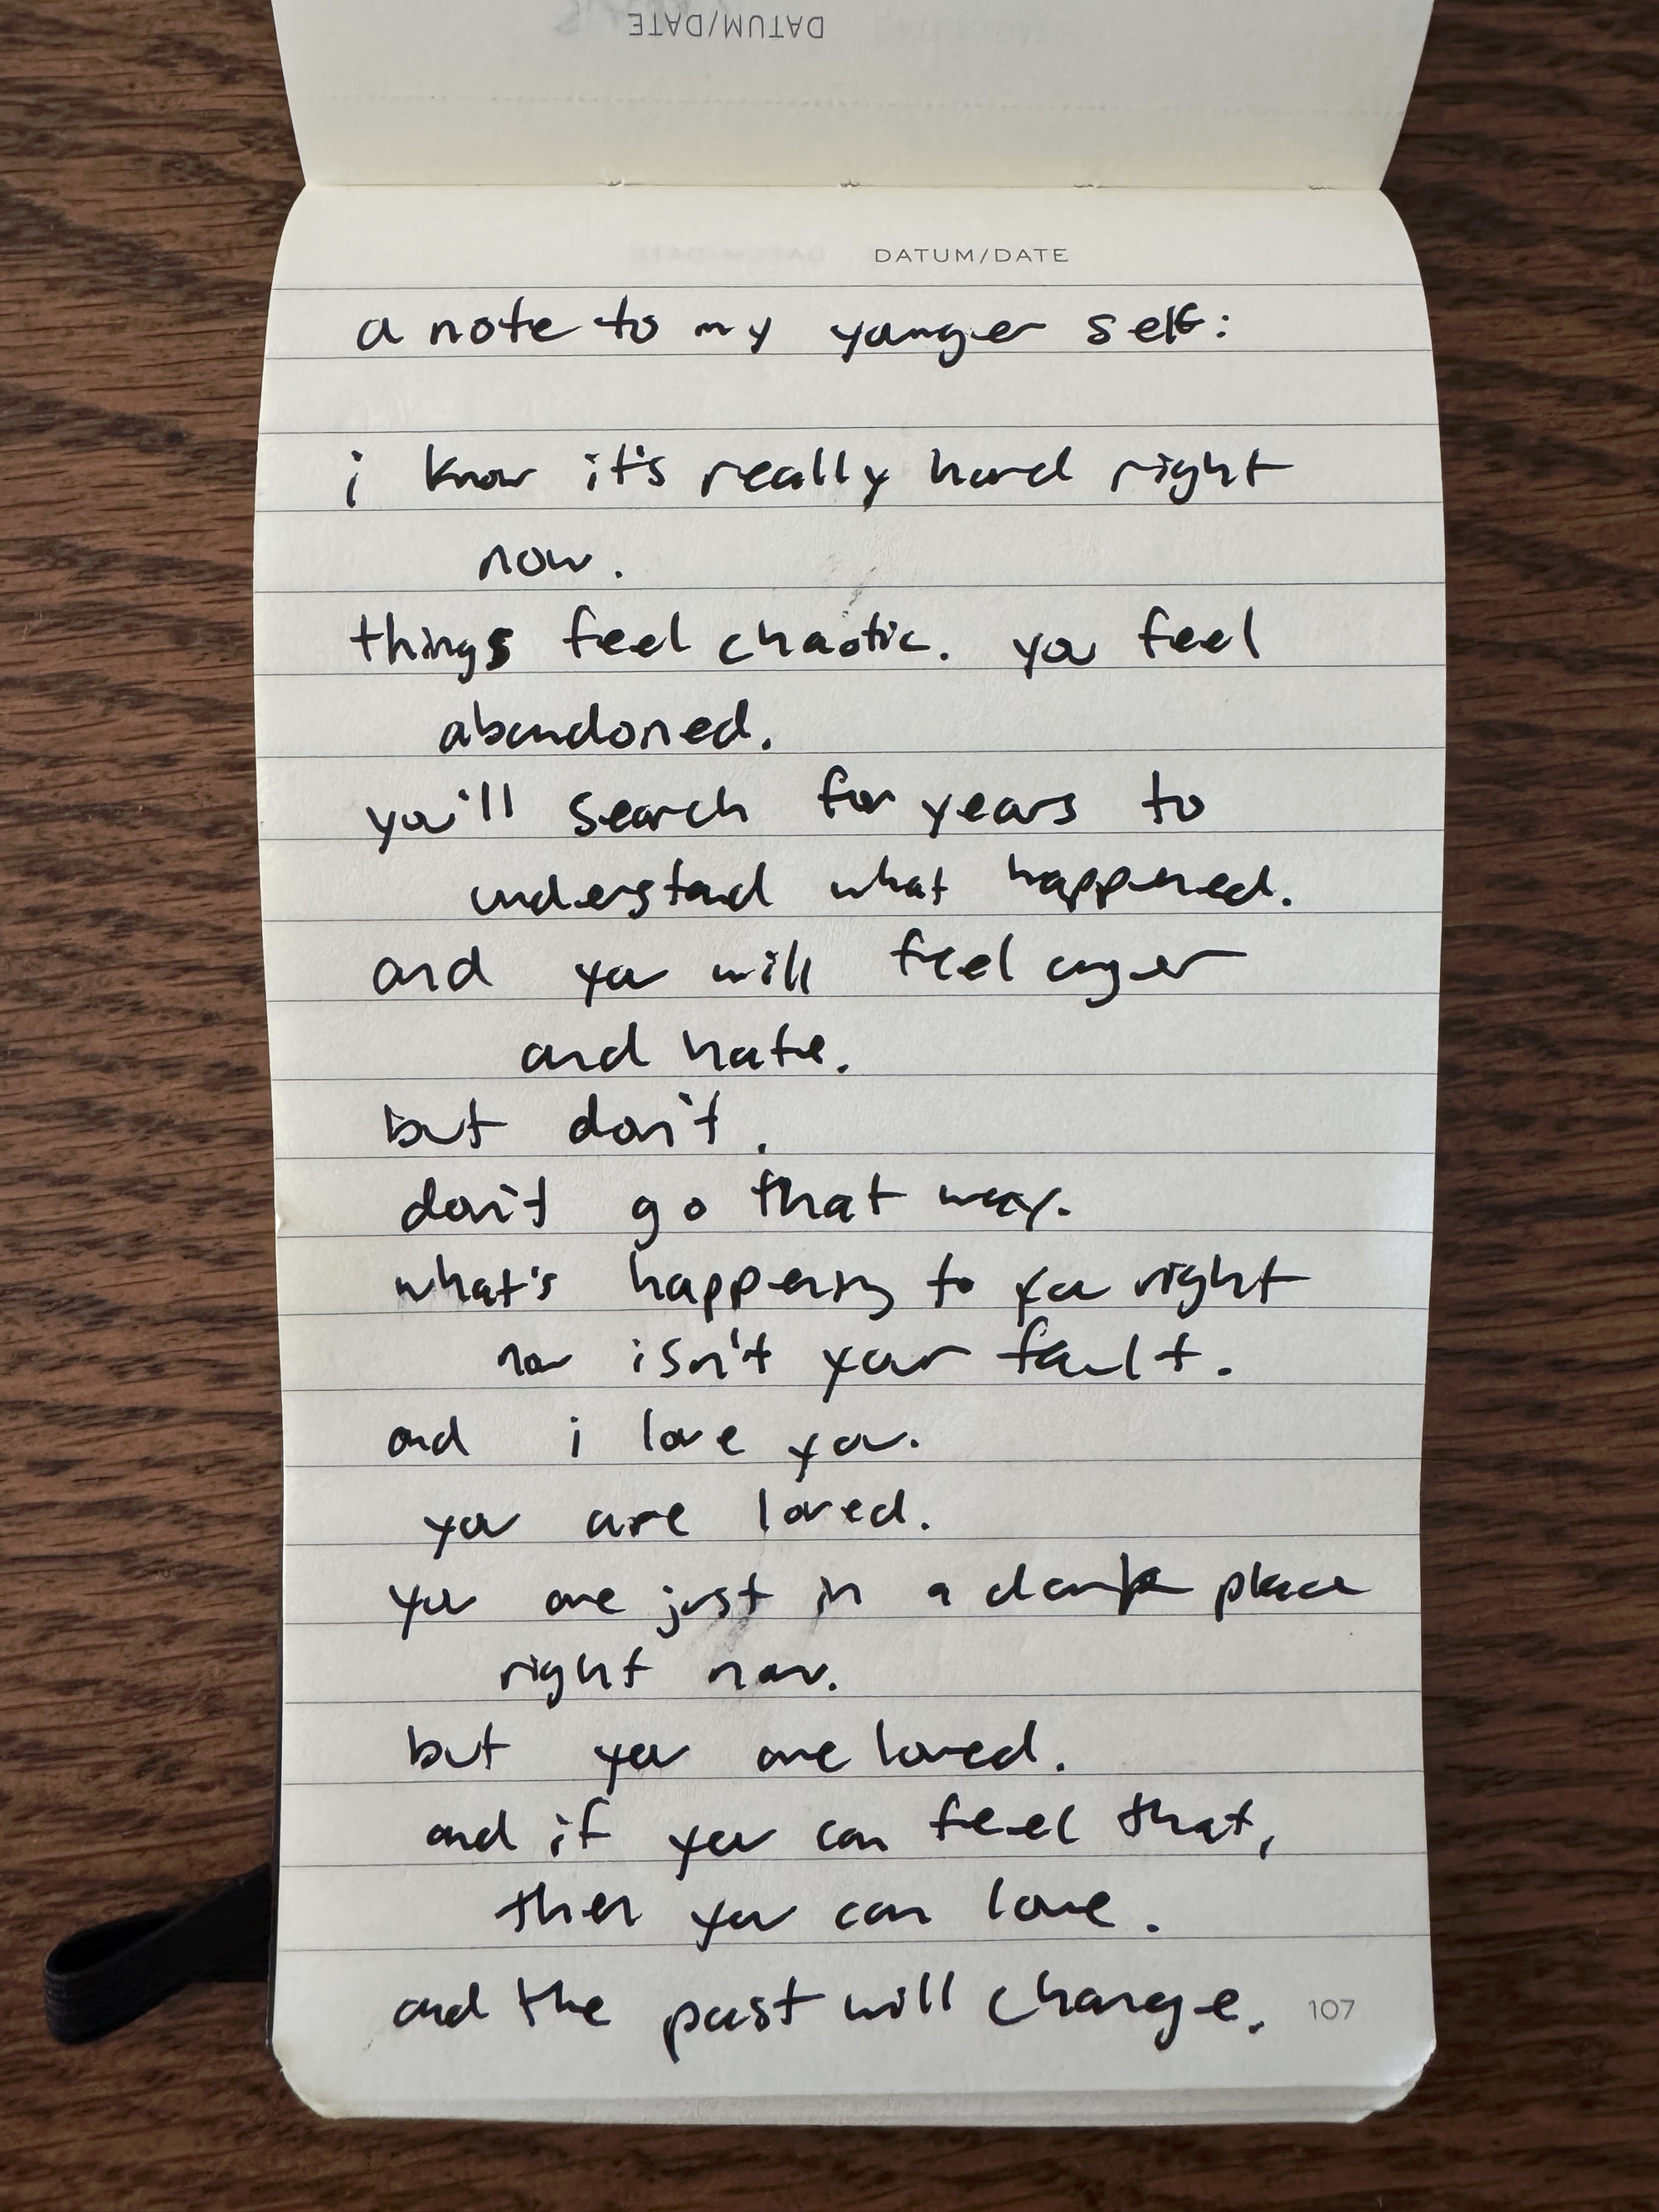 DATUM/DATE
DATUM/DATE
a note to my younger self:
i know it's really hard right
now.
things feel chaotic. you feel
abandoned.
you'll search for years to
understand what happened.
and you will feel anger
and hate.
but don't.
don't go that way.
what's happening to you right
now isn't your fault.
and i love you.
you are loved.
you are just in a dark place
right now.
but you are loved.
and if you can feel that,
then you can love.
and the past will change.
107